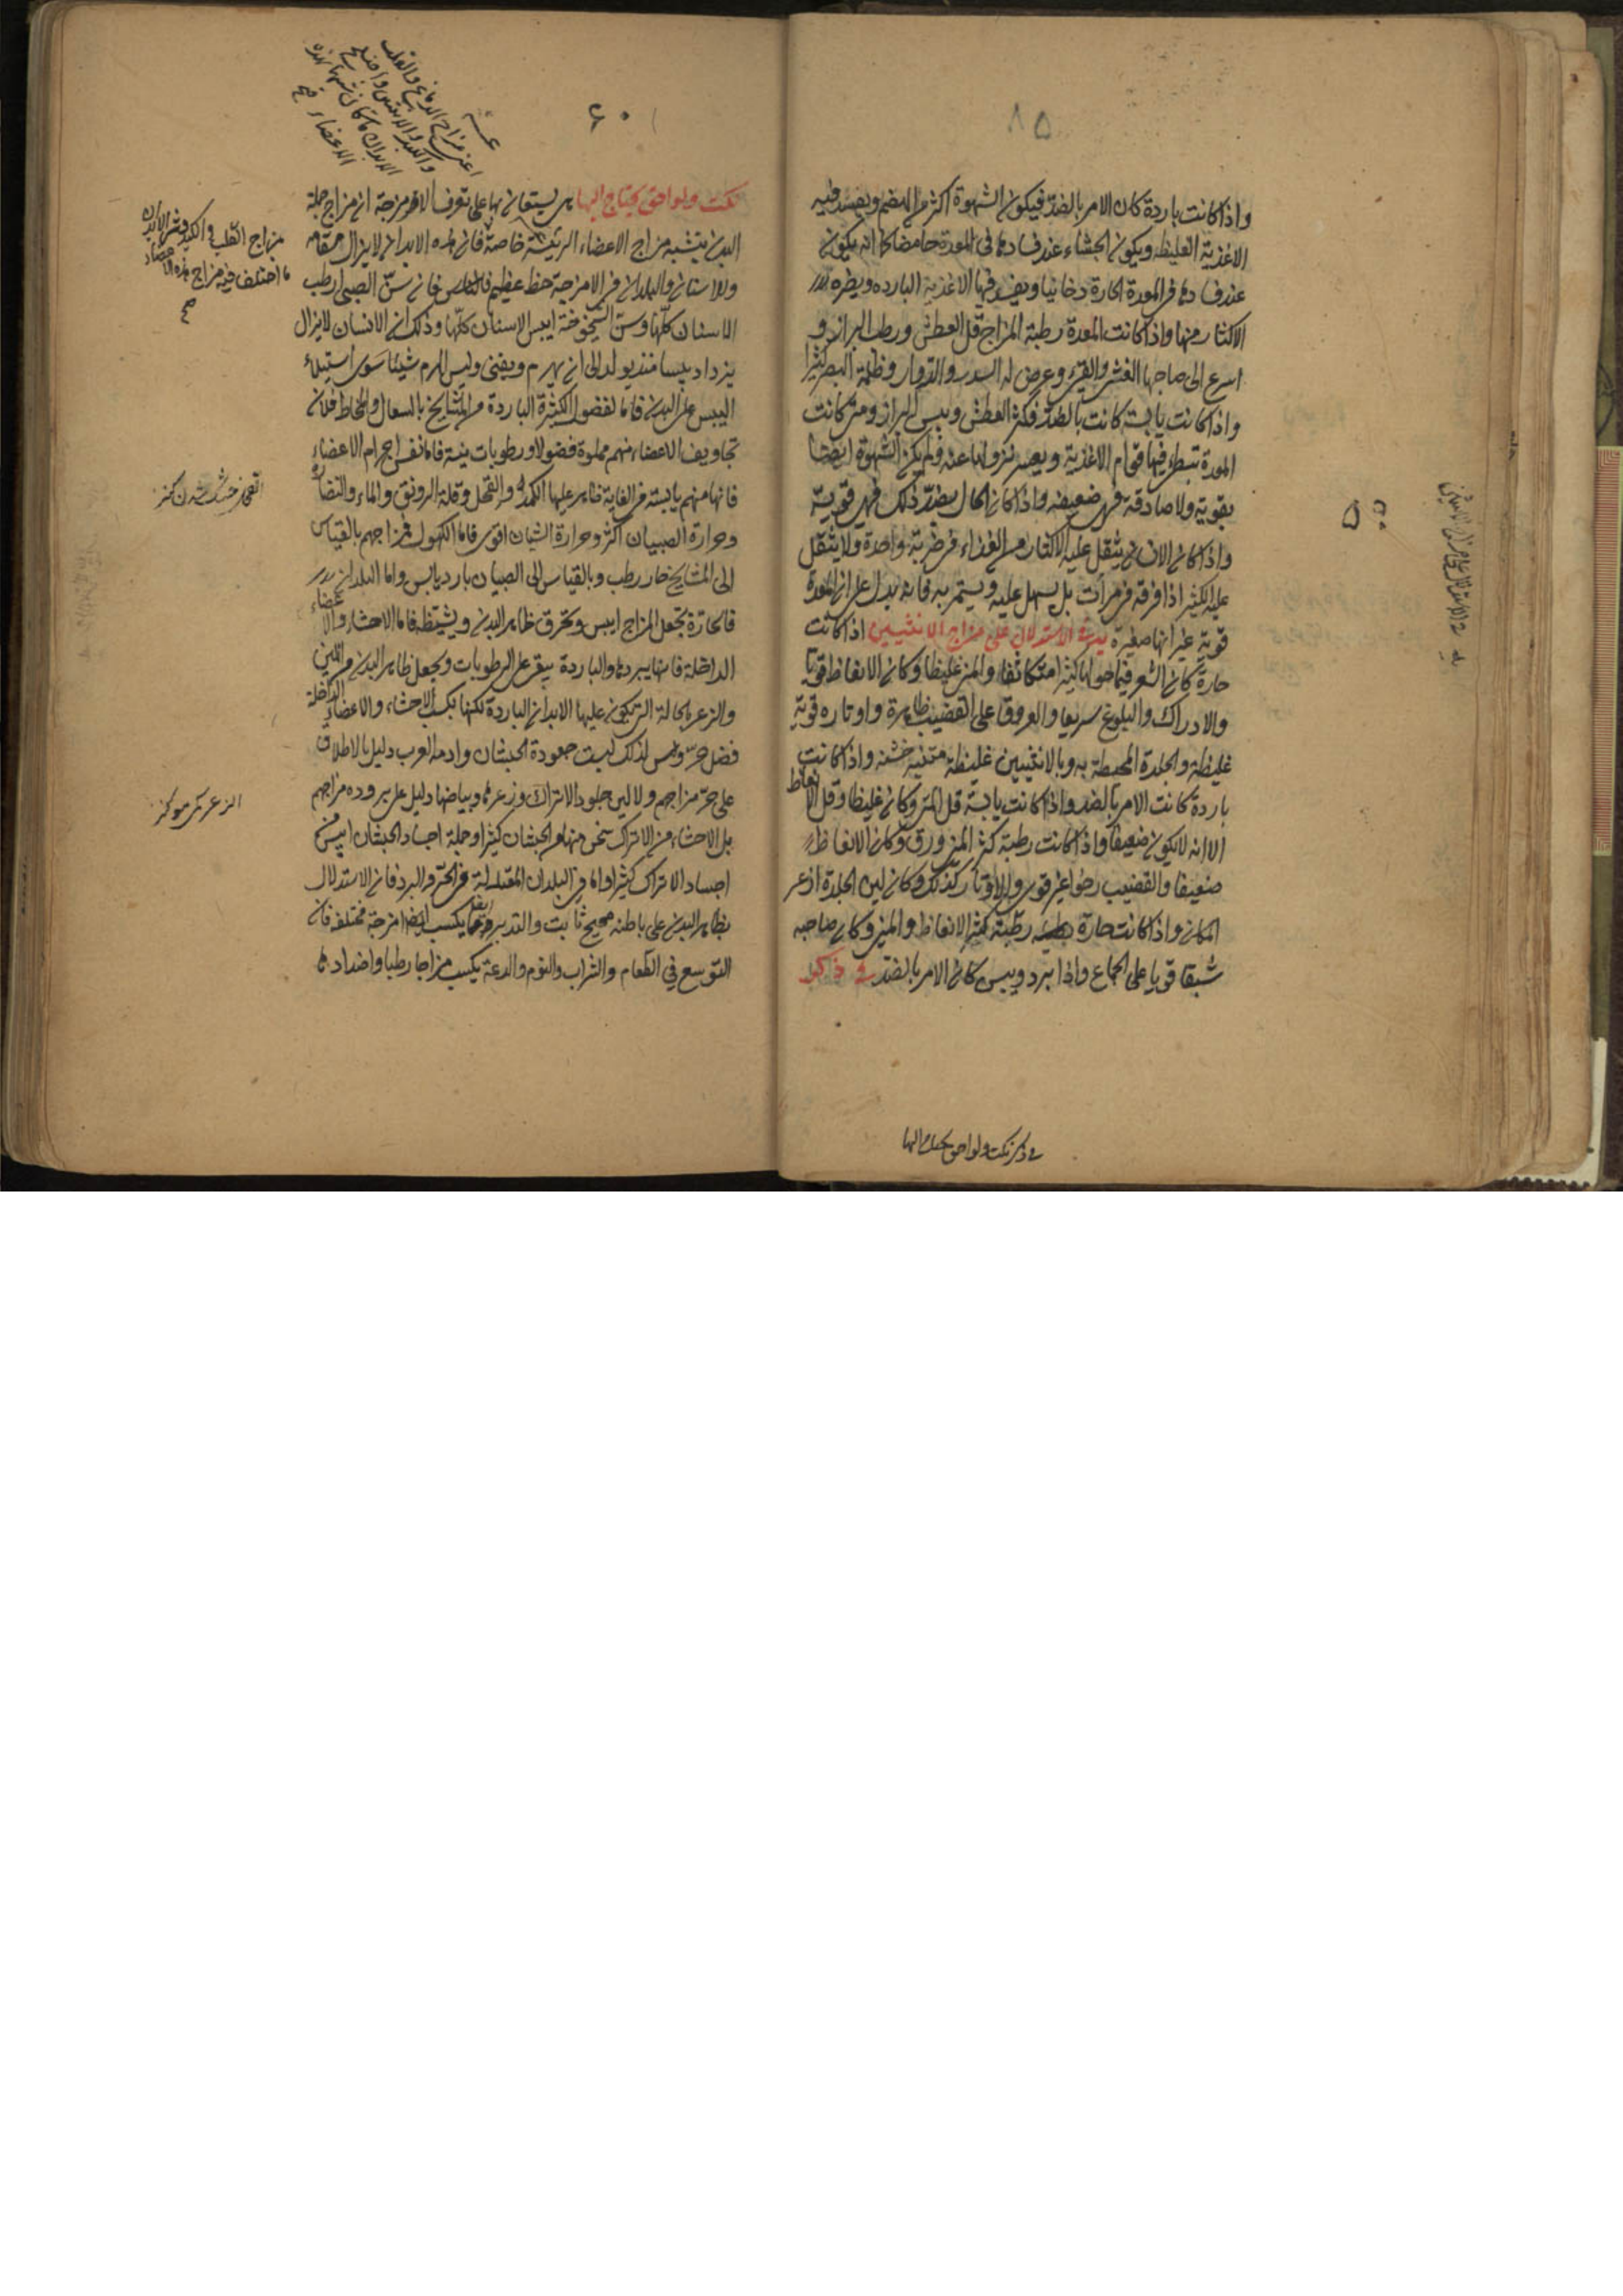 ٨٥
واذا كانت باردة كان الامر بالضد فيكون الشهوة اكثر من الهضم ويفسد فيه
الاغذية الغليظه ويكون الجشاء عند فسادها فى المعدة حامضا كما انه يكون
عند فسادها فى المعدة الحارة دخانيا ويفسد فيها الاغذية البارده ويضره
الاكثار منها واذا كانت المعدة رطبة المزاج قل العطش ورطب البراز و
اسرع الى صاحبها الغشى والقىء وعرض له السدر والدوار وظلمة البصر كثيرا
واذا كانت يابسة كانت بالضد فكثر العطش ويبس البراز ومتى كانت
المعدة تبطئ فيها قوام الاغذية ويعسر نزولها عنه ولم يكن الشهوة ايضا
بقوية ولا صادقة فهى ضعيفه واذا كان الحال بضد ذلك فهى قوية
واذا كان الانسان يثقل عليه الاكثار من الغذاء فى ضربة واحدة ولا يثقل
عليه الكثير اذا فرقه فى مرات بل يسهل عليه ويستمر به فانه يدل على ان المعدة
قوية غير انها صغيرة فى الاستدلال على مزاج الانثيين اذا كانت
حارة كان الشعر فيما حواليها كثيرا متكاثفا والمنى غليظا وكان الانعاظ قويا
والادراك والبلوغ سريعا والعروق على القضيب ظاهرة واوتاره قوية
غليظة والجلدة المحيطة به وبالانثيين غليظة متينة خشنه واذا كانت
باردة كانت الامر بالضد واذا كانت يابسة قل المنى وكان غليظا وقل الانعاظ
الا انه لا يكون ضعيفا واذا كانت رطبة كثر المنى ورق وكان الانعاظ
ضعيفا والقضيب رخوا غير قوى والاوتار كذلك وكان لين الجلدة ازعر
المكان واذا كانت حارة رطبة كثر الانعاظ والمنى وكان صاحبه
شبقا قويا على الجماع واذا برد ويبس كان الامر بالضد فى ذكر
فى ذكر نكت ولواحق يحتاج اليها
٦٠
نكت ولواحق يحتاج اليها يستعان بها على تعرف الامزجة ان مزاج جملة
البدن يتشبه بمزاج الاعضاء الرئيسة خاصة فان هذه الابدان لا يزال
وللاسنان والبلدان فى الامزجة حظ عظيم فان سن الصبى ارطب
الاسنان كلها وسن الشيخوخة ايبس الاسنان كلها وذلك ان الانسان لا يزال
يزداد يبسا منذ يولد الى ان يهرم ويفنى وليس الهرم شيئا سوى استيلاء
اليبس على البدن فاما الفضول الكثيرة الباردة من المشايخ بالسعال والمخاط فلان
تجاويف الاعضاء منهم مملوة فضولا ورطوبات نيئة فاما نفس اجرام الاعضاء
فانها منهم يابسة فى الغاية ظاهر عليها الكمدة والقحل وقلة الرونق والماء والنضارة
وحرارة الصبيان اكثر وحرارة الشبان اقوى فاما الكهول فمزاجهم بالقياس
الى المشايخ حار رطب وبالقياس الى الصبيان بارد يابس واما البلدان
فالحارة تجعل المزاج ايبس وتحرق ظاهر البدن ويشيطه فاما الاحشاء والاعضاء
الداخلة فانها يبردها والباردة يبقى على الرطوبات ويجعل ظاهر البدن من اللين
والزعر بالحالة التى يكون عليها الابدان الباردة لكنها يكسب الاحشاء والاعضاء الداخلة
فضل حر ومن لذلك ليست جعودة الحبشان وادمة العرب دليل بالاطلاق
على حر مزاجهم ولا لين جلود الاتراك وزعرها وبياضها دليل على بروده مزاجهم
بل الاحشاء من الاتراك اسخن منها من الحبشان كثيرا وجملة اجساد الحبشان ايبس من
اجساد الاتراك كثيرا واما فى البلدان المعتدلة فى الحر والبرد فان الاستدلال
بظاهر البدن على باطنه صحيح ثابت والتدبير يكسب امزجة مختلفه فان
التوسع فى الطعام والشراب والنوم والدعة يكسب مزاجا رطبا واضدادها
مزاج القلب والكبد
ما اختلف فيه مزاج هذه الاعضاء
صح